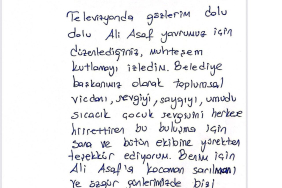 Televizyonda gözlerim dolu
dolu Ali Asaf yavrumuz için
düzenlediğiniz, muhteşem
kutlamayı izledim. Belediye
başkanımız olarak toplumsal
vicdanı, sevgiyi, saygıyı, umudu
sıcacık çocuk sevgisini herkese
hissettiren bu buluşma için
sana ve bütün ekibine yürekten
teşekkür ediyorum. Benim için
Ali Asaf'la kocaman sarılmanı
ve özgür günlerimizde bizi